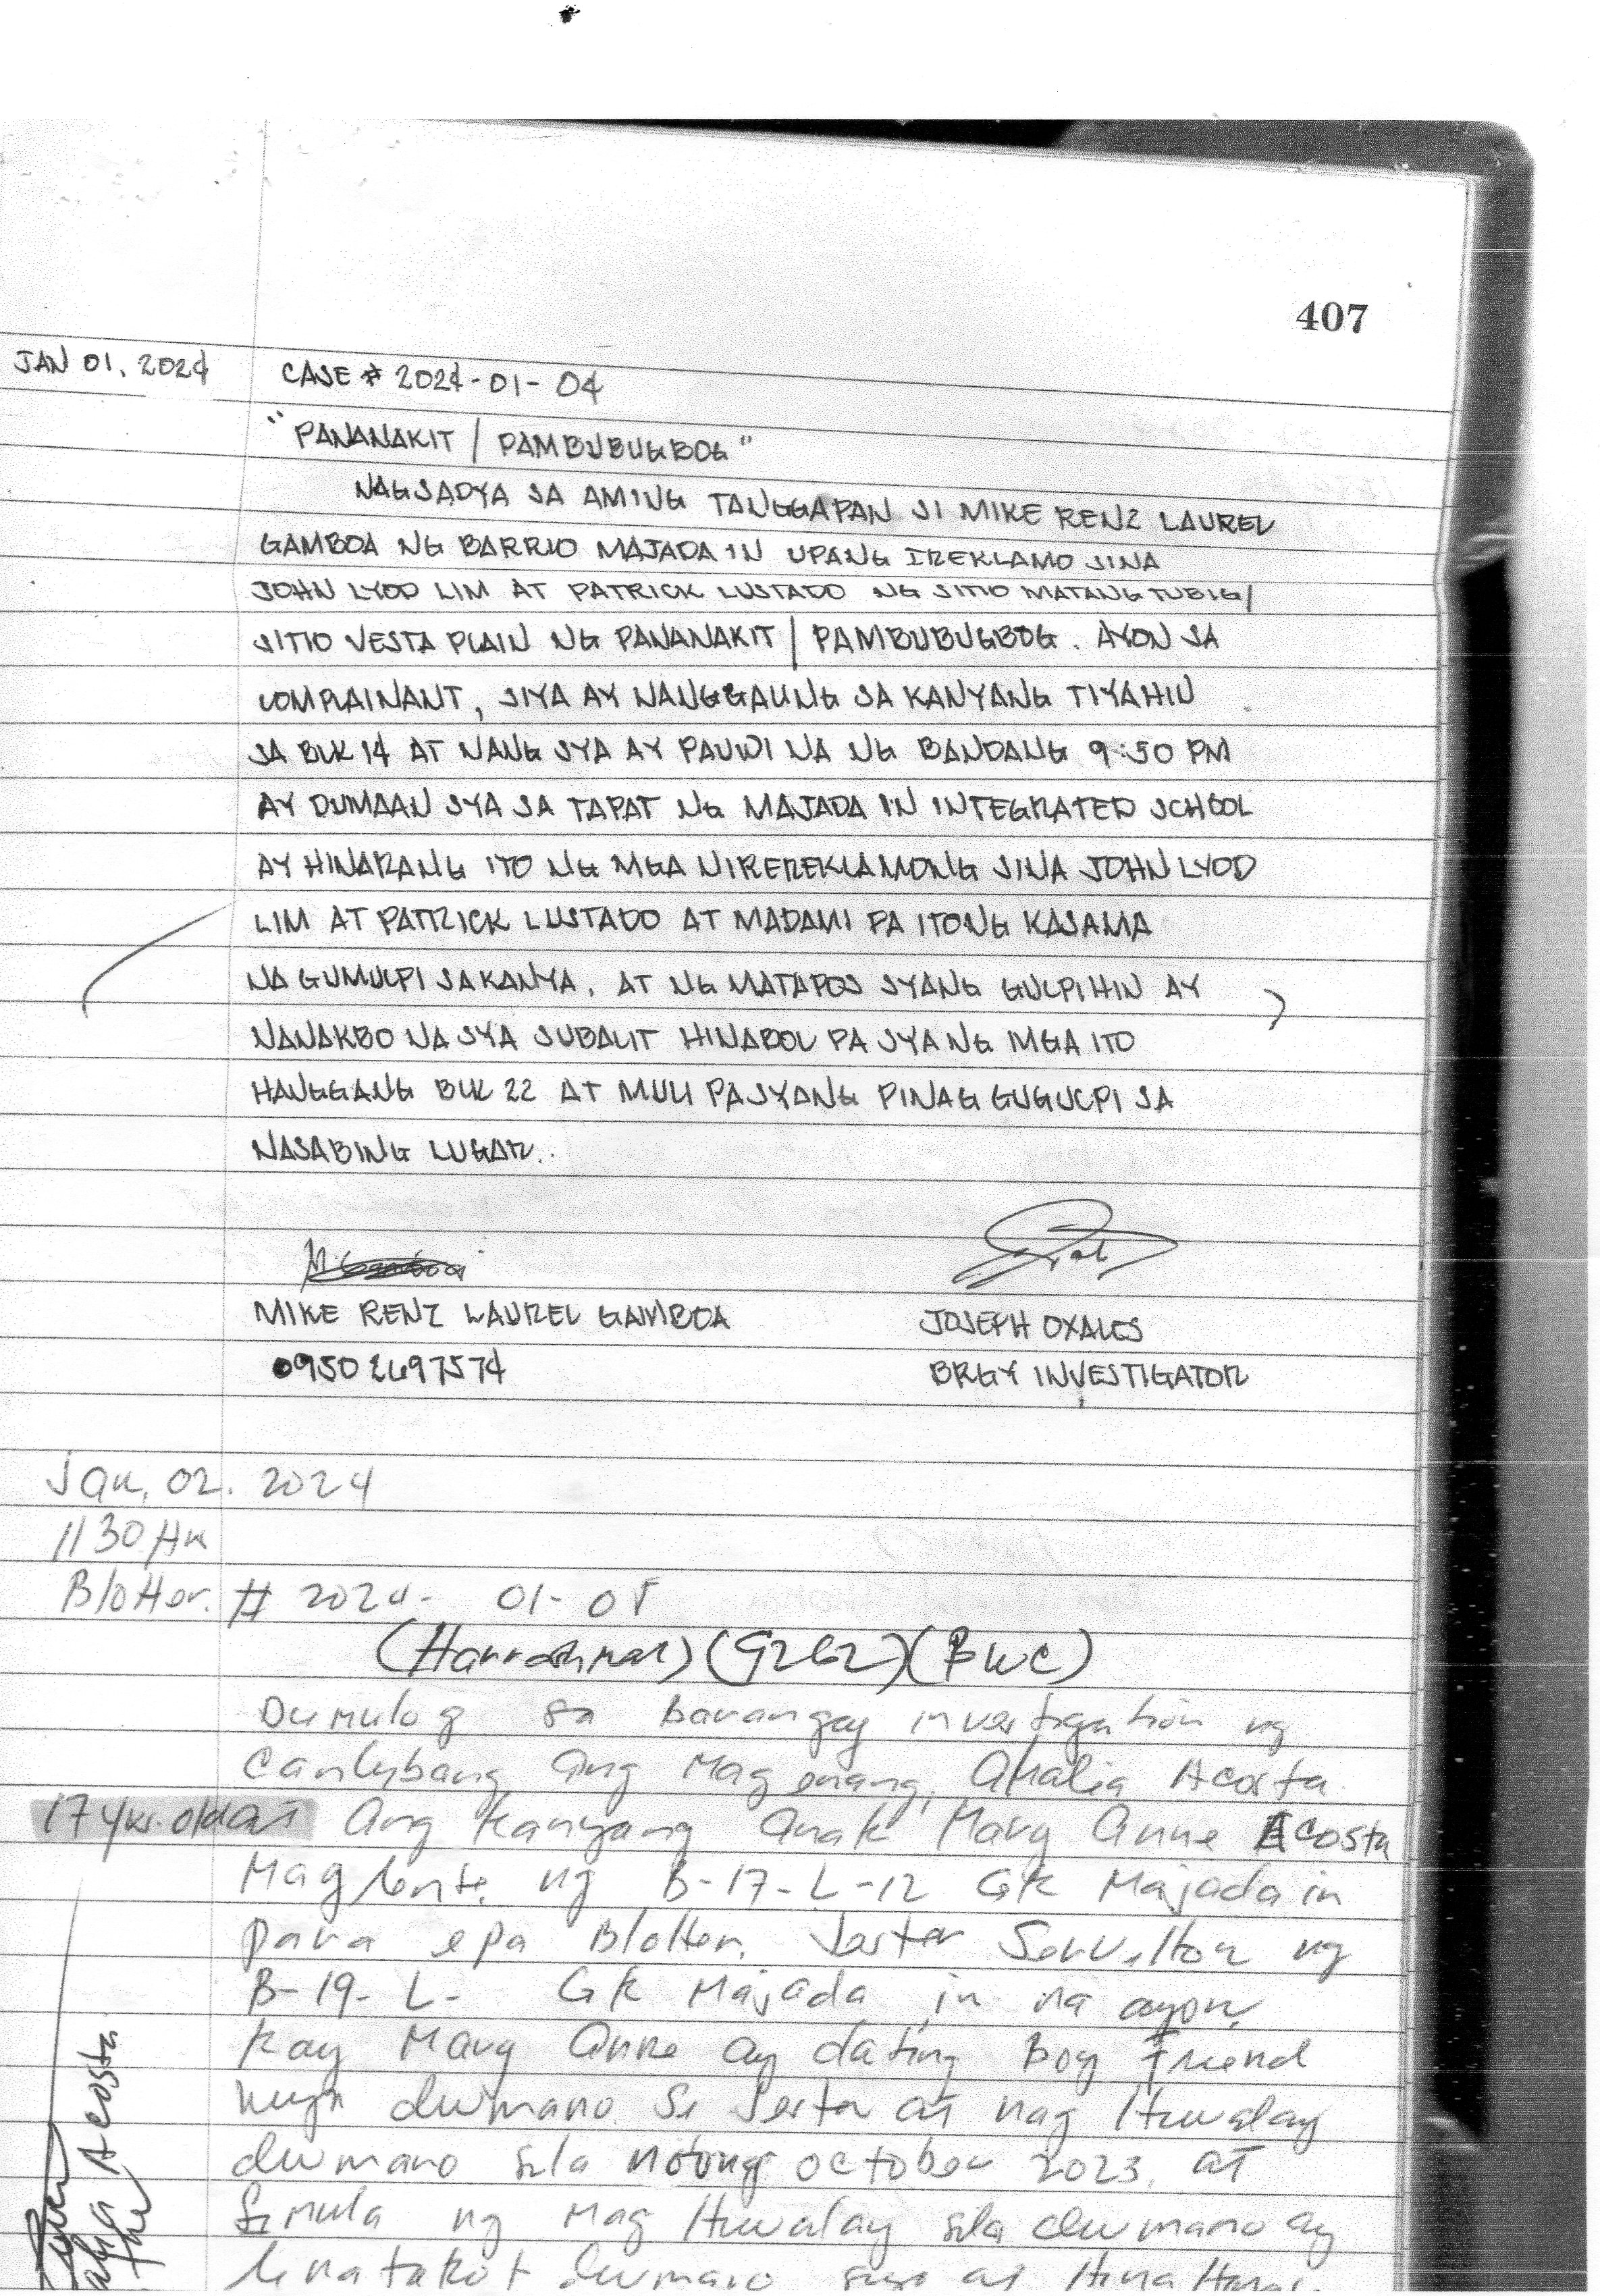 407
JAN 01, 2024 CASE # 2024-01-04
"PANANAKIT / PAMBUBUGBOG"
NAGSADYA SA AMING TANGGAPAN SI MIKE RENZ LAUREL
GAMBOA NG BARRIO MAJADA IN UPANG IREKLAMO SINA
JOHN LYOD LIM AT PATRICK LUSTADO NG SITIO MATANG TUBIG/
SITIO VESTA PLAIN NG PANANAKIT / PAMBUBUGBOG. AYON SA
COMPLAINANT, SIYA AY NANGGALING SA KANYANG TIYAHIN
SA BLK 14 AT NANG SYA AY PAUWI NA NG BANDANG 9:50 PM
AY DUMAAN SYA SA TAPAT NG MAJADA IN INTEGRATED SCHOOL
AY HINARANG ITO NG MGA NIREREKLAMONG SINA JOHN LYOD
LIM AT PATRICK LUSTADO AT MADAMI PA ITONG KASAMA
NA GUMULPI SA KANYA, AT NG MATAPOS SYANG GULPIHIN AY
NANAKBO NA SYA SUBALIT HINABOL PA SYA NG MGA ITO
HANGGANG BLK 22 AT MULI PA SYANG PINAG GUGULPI SA
NASABING LUGAR..
M. Gamboa
MIKE RENZ LAUREL GAMBOA JOSEPH OXALES
09502697574 BRGY INVESTIGATOR
Jan. 02. 2024
1130 Am
Blotter. # 2024- 01-05
(Harrashmat) (9262) (BWC)
Dumulog sa barangay investigation ng
Canlubang ang Mag enang, Analia Acosta
17 yrs. old at Ang kanyang anak Mary Anne Acosta
Maglente ng B-17-L-12 GK Majada in
para epa Blotter. Jester Servilton ng
B-19-L- GK Majada in na ayon
kay Mary Anne ay dating Boy Friend
nya dumano si Jester at nag Hiwalay
dumano sila notong october 2023. at
Simula ng Mag Hiwalay sila dumano ay
tinatakot dumano at
Acosta